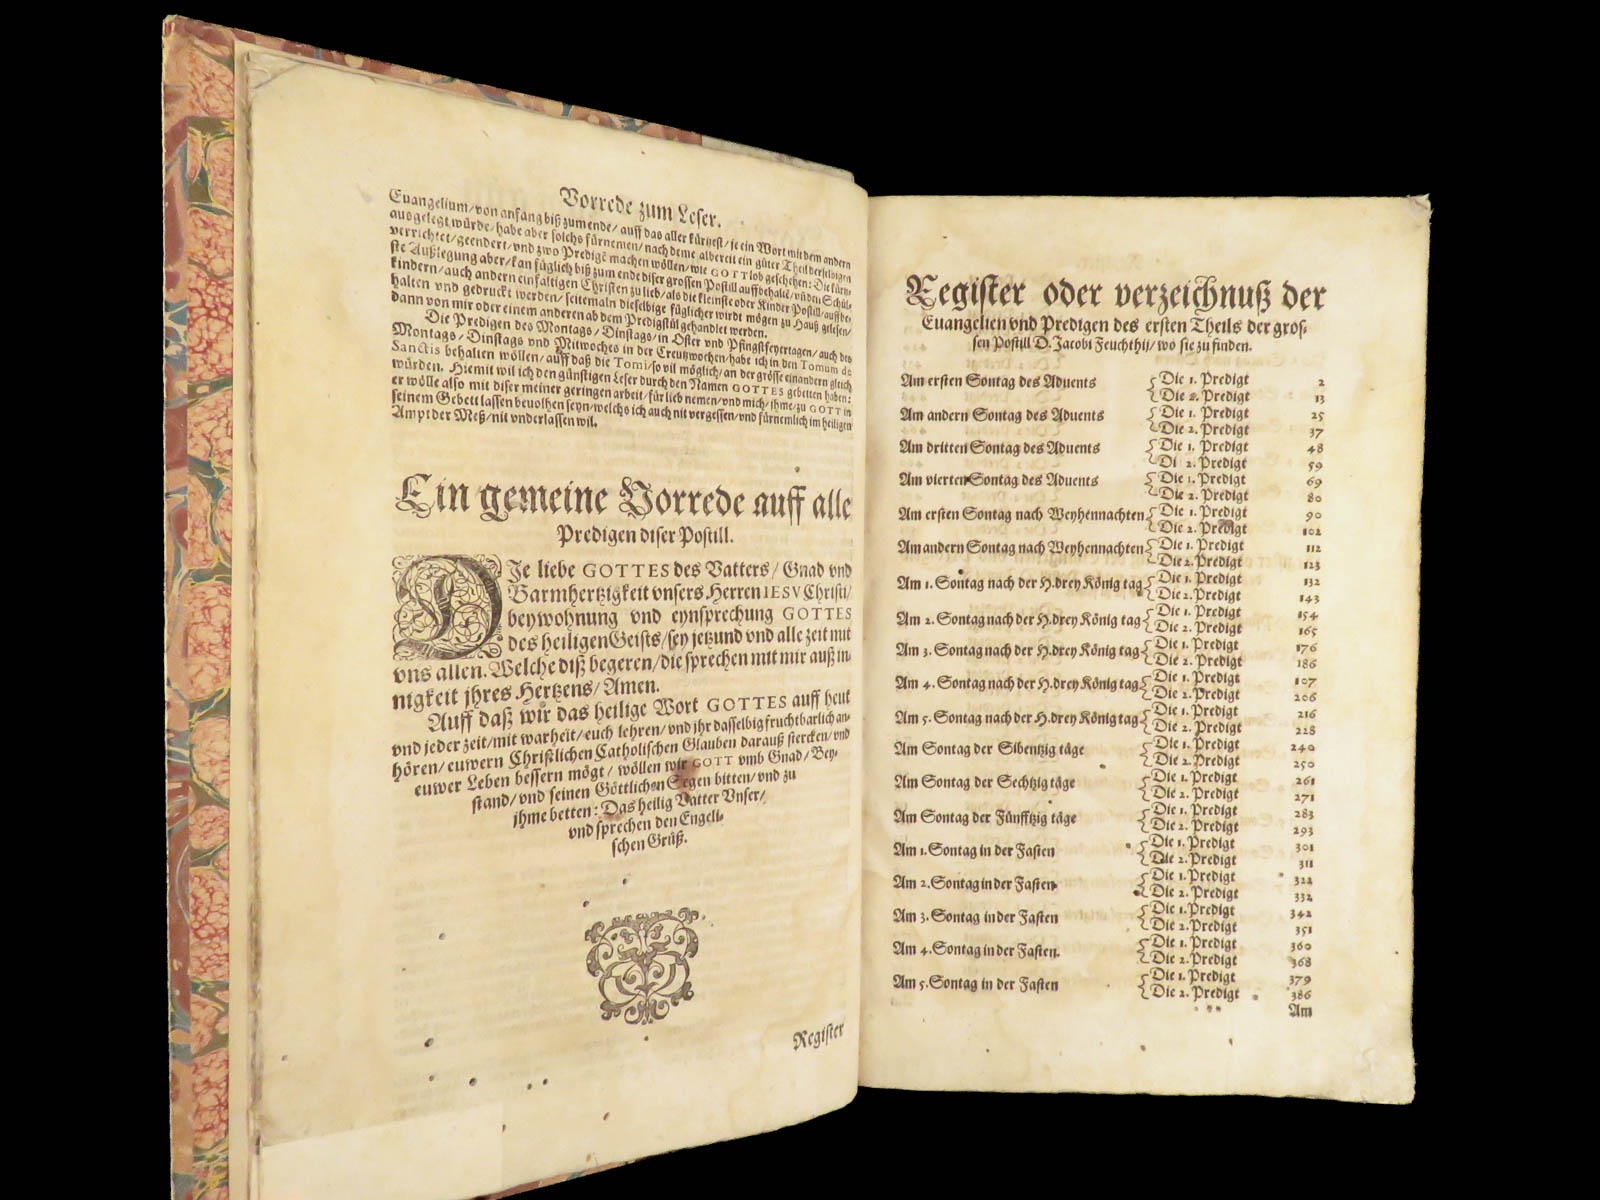 Vorrede zum Leser.
Euangelium/von anfang biß zum ende/ auff das aller kürtzest/ je ein Wort mit dem andern
außgelegt würde/ habe aber solchs fürnemen/ nach deme albereit ein güter Theil derselbigen
verrichtet/geendert/vnd zwo Predigẽ machen wöllen/ wie GOTT lob geschehen: Die kürtz-
ste Außlegung aber/ kan füglich biß zum ende diser grossen Postill auffbehaltẽ/ vñ den Schül-
kindern/ auch andern einfaltigen Christen zu lieb/ als die kleinste oder Kinder Postill/ auffbe-
halten vnd gedruckt werden/ seitemaln dieselbige füglicher wirdt mögen zu Hauß gelesen/
dann von mir oder einem anderen ab dem Predigstůl gehandlet werden.
Die Predigen des Montags/ Dinstags/ in Oster vnd Pfingstfeyertagen/ auch des
Montags/ Dinstags vnd Mitwoches in der Creutzwochen/ habe ich in den Tomum de
Sanctis behalten wöllen/ auff daß die Tomi/ so vil möglich/ an der grösse einandern gleich
würden. Hiemit wil ich den günstigen Leser durch den Namen GOTTES gebetten haben:
er wölle also mit diser meiner geringen arbeit/ für lieb nemen/ vnd mich/ ihme/ zu GOTT in
seinem Gebett lassen beuolhen seyn/ welchs ich auch nit vergessen/ vnd fürnemlich im heiligen
Ampt der Meß/ nit vnderlassen wil.
Ein gemeine Vorrede auff alle
Predigen diser Postill.
DIe liebe GOTTES des Vatters/ Gnad vnd
Barmhertzigkeit vnsers Herren IESV Christi/
beywohnung vnd eynsprechung GOTTES
des heiligen Geists/ sey jetzund vnd alle zeit mit
vns allen. Welche diß begeren/ die sprechen mit mir auß in-
nigkeit jhres Hertzens/ Amen.
Auff daß wir das heilige Wort GOTTES auff heut
vnd jeder zeit/ mit warheit/ euch lehren/ vnd jhr dasselbig fruchtbarlich an-
hören/ euwern Christlichen Catholischen Glauben darauß stercken/ vnd
euwer Leben bessern mögt/ wöllen wir GOTT vmb Gnad/ Bey-
stand/ vnd seinen Göttlichen Segen bitten/ vnd zu
jhme betten: Das heilig Vatter Vnser/
vnd sprechen den Engeli-
schen Grůß.
Register
Register oder verzeichnuß der
Euangelien vnd Predigen des ersten Theils der gros-
sen Postill D. Jacobi Feuchthij/ wo sie zu finden.
Am ersten Sontag des Aduents { Die 1. Predigt 2
Die 2. Predigt 13
Am andern Sontag des Aduents { Die 1. Predigt 25
Die 2. Predigt 37
Am dritten Sontag des Aduents { Die 1. Predigt 48
Di 2. Predigt 59
Am vierten Sontag des Aduents { Die 1. Predigt 69
Die 2. Predigt 80
Am ersten Sontag nach Weyhennachten { Die 1. Predigt 90
Die 2. Predigt 102
Am andern Sontag nach Weyhennachten { Die 1. Predigt 112
Die 2. Predigt 123
Am 1. Sontag nach der H. drey König tag { Die 1. Predigt 132
Die 2. Predigt 143
Am 2. Sontag nach der H. drey König tag { Die 1. Predigt 154
Die 2. Predigt 165
Am 3. Sontag nach der H. drey König tag { Die 1. Predigt 176
Die 2. Predigt 186
Am 4. Sontag nach der H. drey König tag { Die 1. Predigt 107
Die 2. Predigt 206
Am 5. Sontag nach der H. drey König tag { Die 1. Predigt 216
Die 2. Predigt 228
Am Sontag der Sibentzig täge { Die 1. Predigt 240
Die 2. Predigt 250
Am Sontag der Sechtzig täge { Die 1. Predigt 261
Die 2. Predigt 271
Am Sontag der Fünfftzig täge { Die 1. Predigt 283
Die 2. Predigt 293
Am 1. Sontag in der Fasten { Die 1. Predigt 301
Die 2. Predigt 311
Am 2. Sontag in der Fasten { Die 1. Predigt 322
Die 2. Predigt 332
Am 3. Sontag in der Fasten { Die 1. Predigt 342
Die 2. Predigt 351
Am 4. Sontag in der Fasten. { Die 1. Predigt 360
Die 2. Predigt 368
Am 5. Sontag in der Fasten { Die 1. Predigt 379
Die 2. Predigt 386
Am